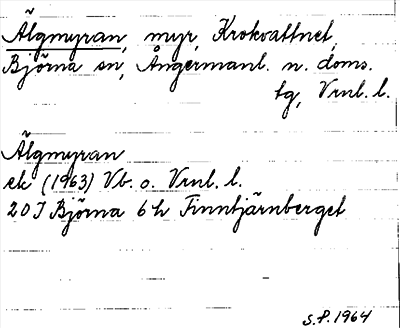 Älgmyran, myr, Krokvattnet,
Björna sn, Ångermanl. n. doms.
tg, Vrnl. l.
Älgmyran
ek (1963) Vb. o. Vrnl. l.
20 I Björna 6 h Finntjärnberget
S.P. 1964